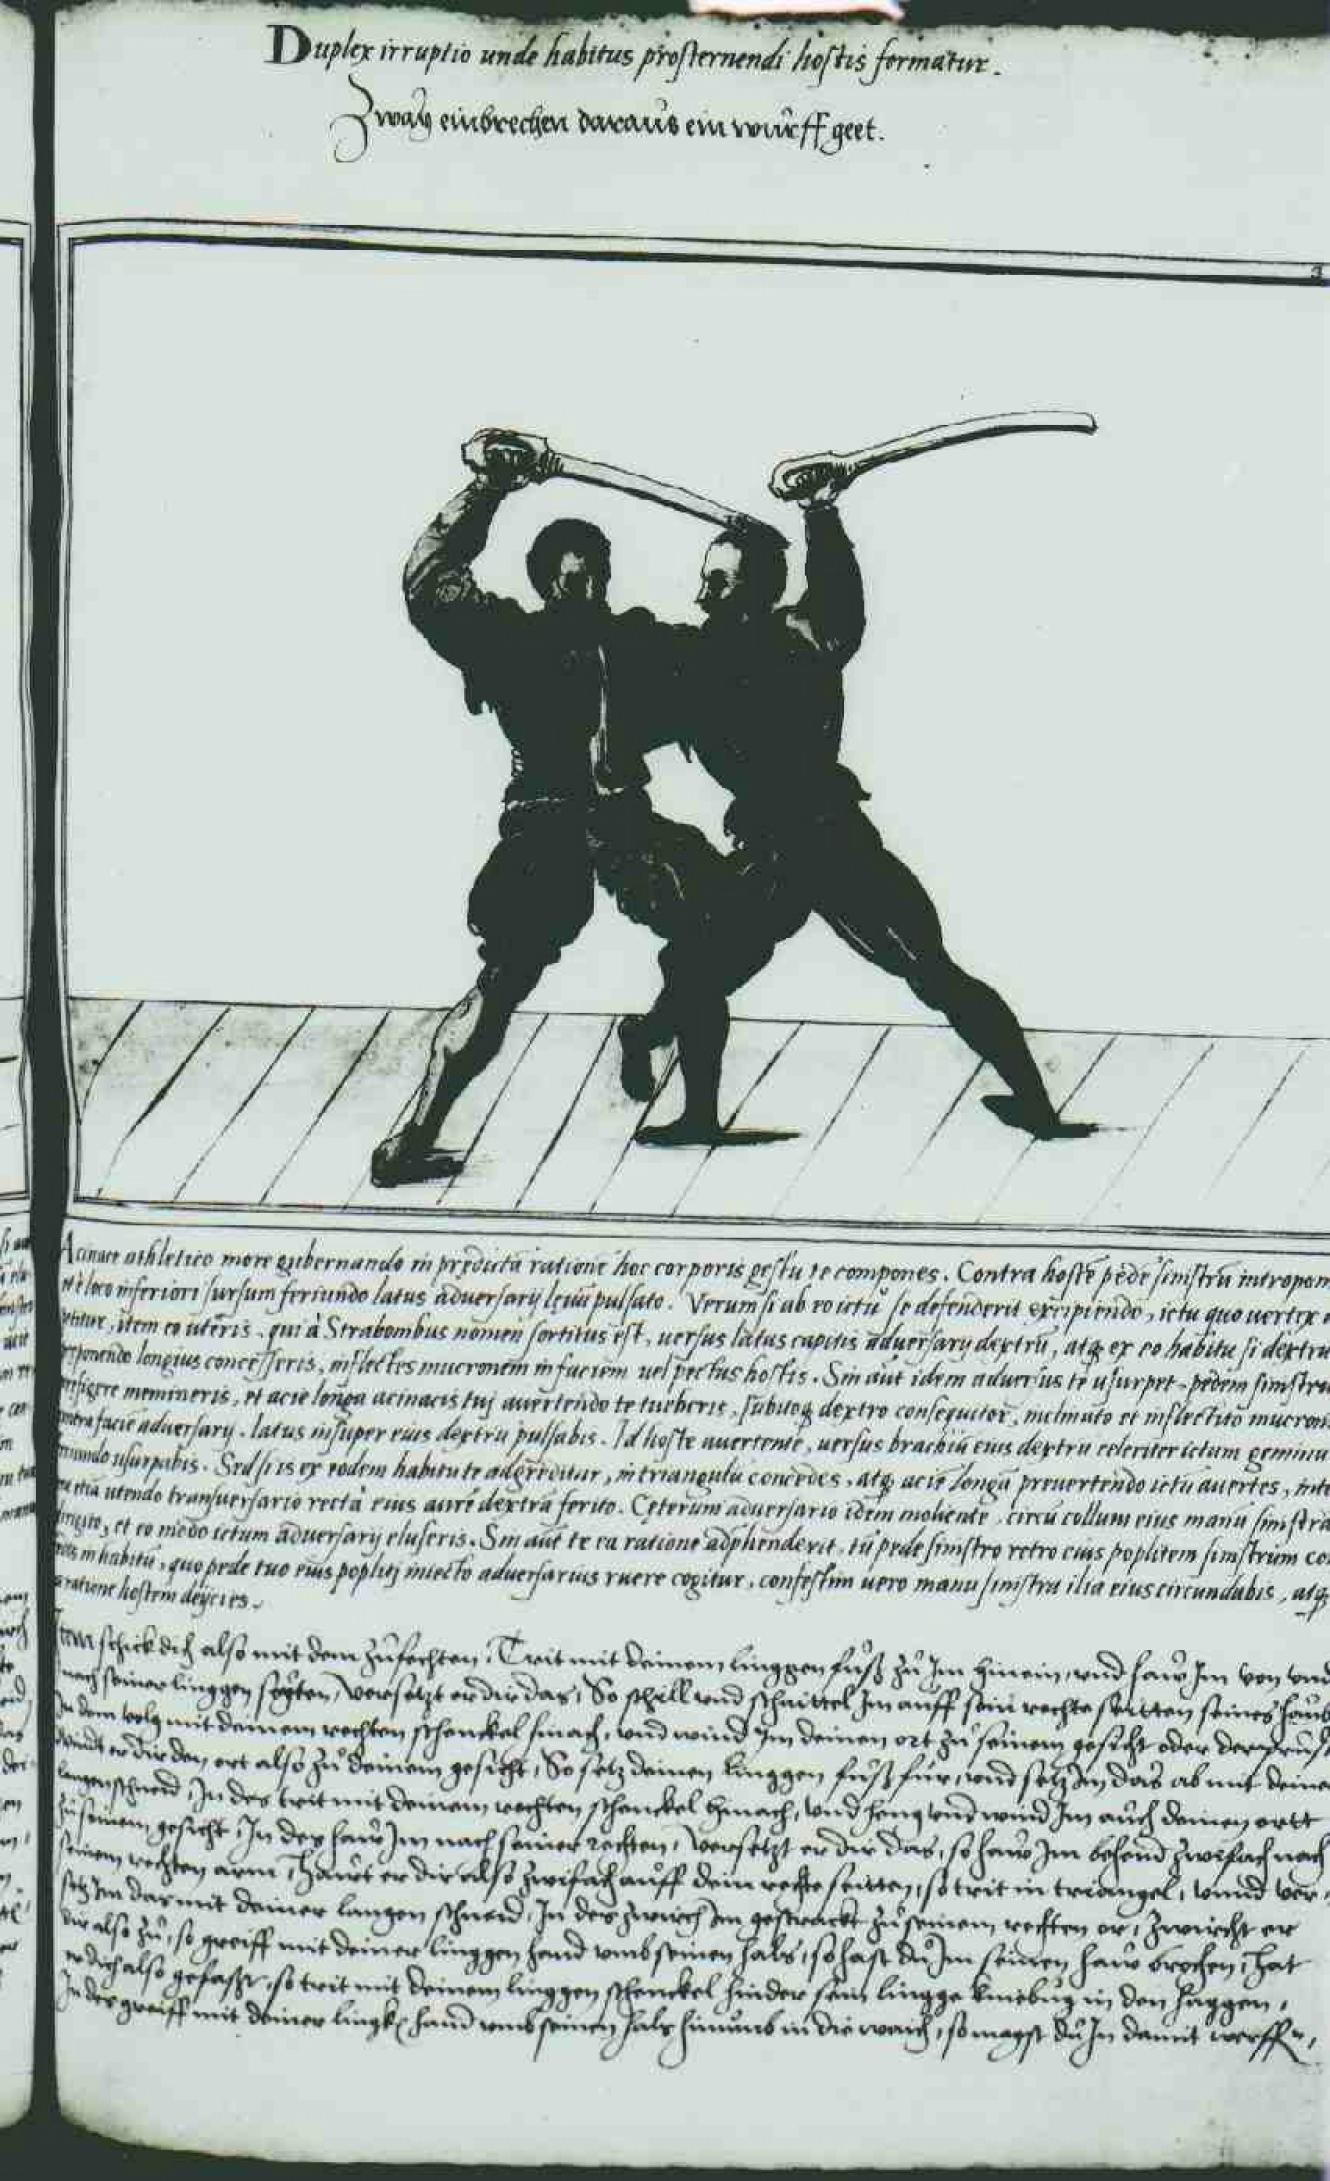 Duplex irruptio unde habitus prosternendi hostis formatur.
Zway einbrechen daraus ein wurff geet.
Acinace athletico more gubernando in prędicta ratione hoc corporis gestu te compones. Contra hostē pedē sinistrū
et è loco inferiori sursum feriundo latus adversarij lęvū pulsato. Verum si ab eo ictu se defenderit excipiendo, ictu quo vertex
petitur, item eo uteris, qui à Strabonibus nomen sortitus est, versus latus capitis adversarij dextrū, atq; ex eo habitu si dextrū
proponendo longius concesseris, inflectes mucronem in faciem vel pectus hostis. Sin aūt idem adversus te usurpet, pedem sinistrum
prefigere memineris, et acie longa acinacis tuj avertendo te tueberis, subitoq; dextro consequitor, intimato et inflectito mucronem
contra faciē adversarij, latus insuper eius dextrū pulsabis. Id hoste avertente, versus brachiū eius dextrū celeriter ictum geminū
usurpabis. Sed si is ex eodem habitu te adgreditur, in triangulū concedes, atq; acie longa prevertendo ictū avertes,
etiā utendo transversario rectà eius aurē dextrā ferito. Cęterum adversario idem moliente, circū collum eius manū sinistrā
et eo modo ictum adversarij eluseris. Sin aūt te ea ratione adphenderit, tū pede sinistro retro eius poplitem sinistrum
in habitū, quo pede tuo eius popliti iniecto adversarius ruere cogitur, confestim vero manu sinistra ilia eius circundabis, atq;
ea ratione hostem deijcies.
Item schick dich also mit dem zufechten, Trit mit deinem linggen fuß zu Im hinein, und haw Im von
nach seiner linggen seyten, versetzt er dir das, So schill und schnittel Im auff sein rechte seitten seines
In dem volg mit deinem rechten schenckel hinach, und wind Im deinen ort zu seinem gesicht oder der prust
windt er dir den ort also zu deinem gesicht, So setz deinen linggen fuß für, und setz Im das ab mit deiner
langen schneid, In des trit mit deinem rechten schenckel hinach, und heng und wind Im auch deinen ortt
zu seinem gesicht, In des haw Im nach seiner rechten, versetzt er dir das, so haw Im behend zwifach nach
seinem rechten arm, Hawt er dir also zwifach auff dein rechte seitten, so trit in triangel, unnd ver
setz Im das mit deiner langen schneid, In des zwirch Im gestrackt zu seinem rechten or, zwircht er
dir also zu, so greiff mit deiner linggen hand umb seinen hals, so hast du Im seinen haw brochen, Hat
er dich also gefasst, so trit mit deinem linggen schenckel hinder sein lingge kniebug in den haggen,
In des greiff mit deiner lingken hand umb seinen hals hinumb in die waich, so magst du In damit werffn,